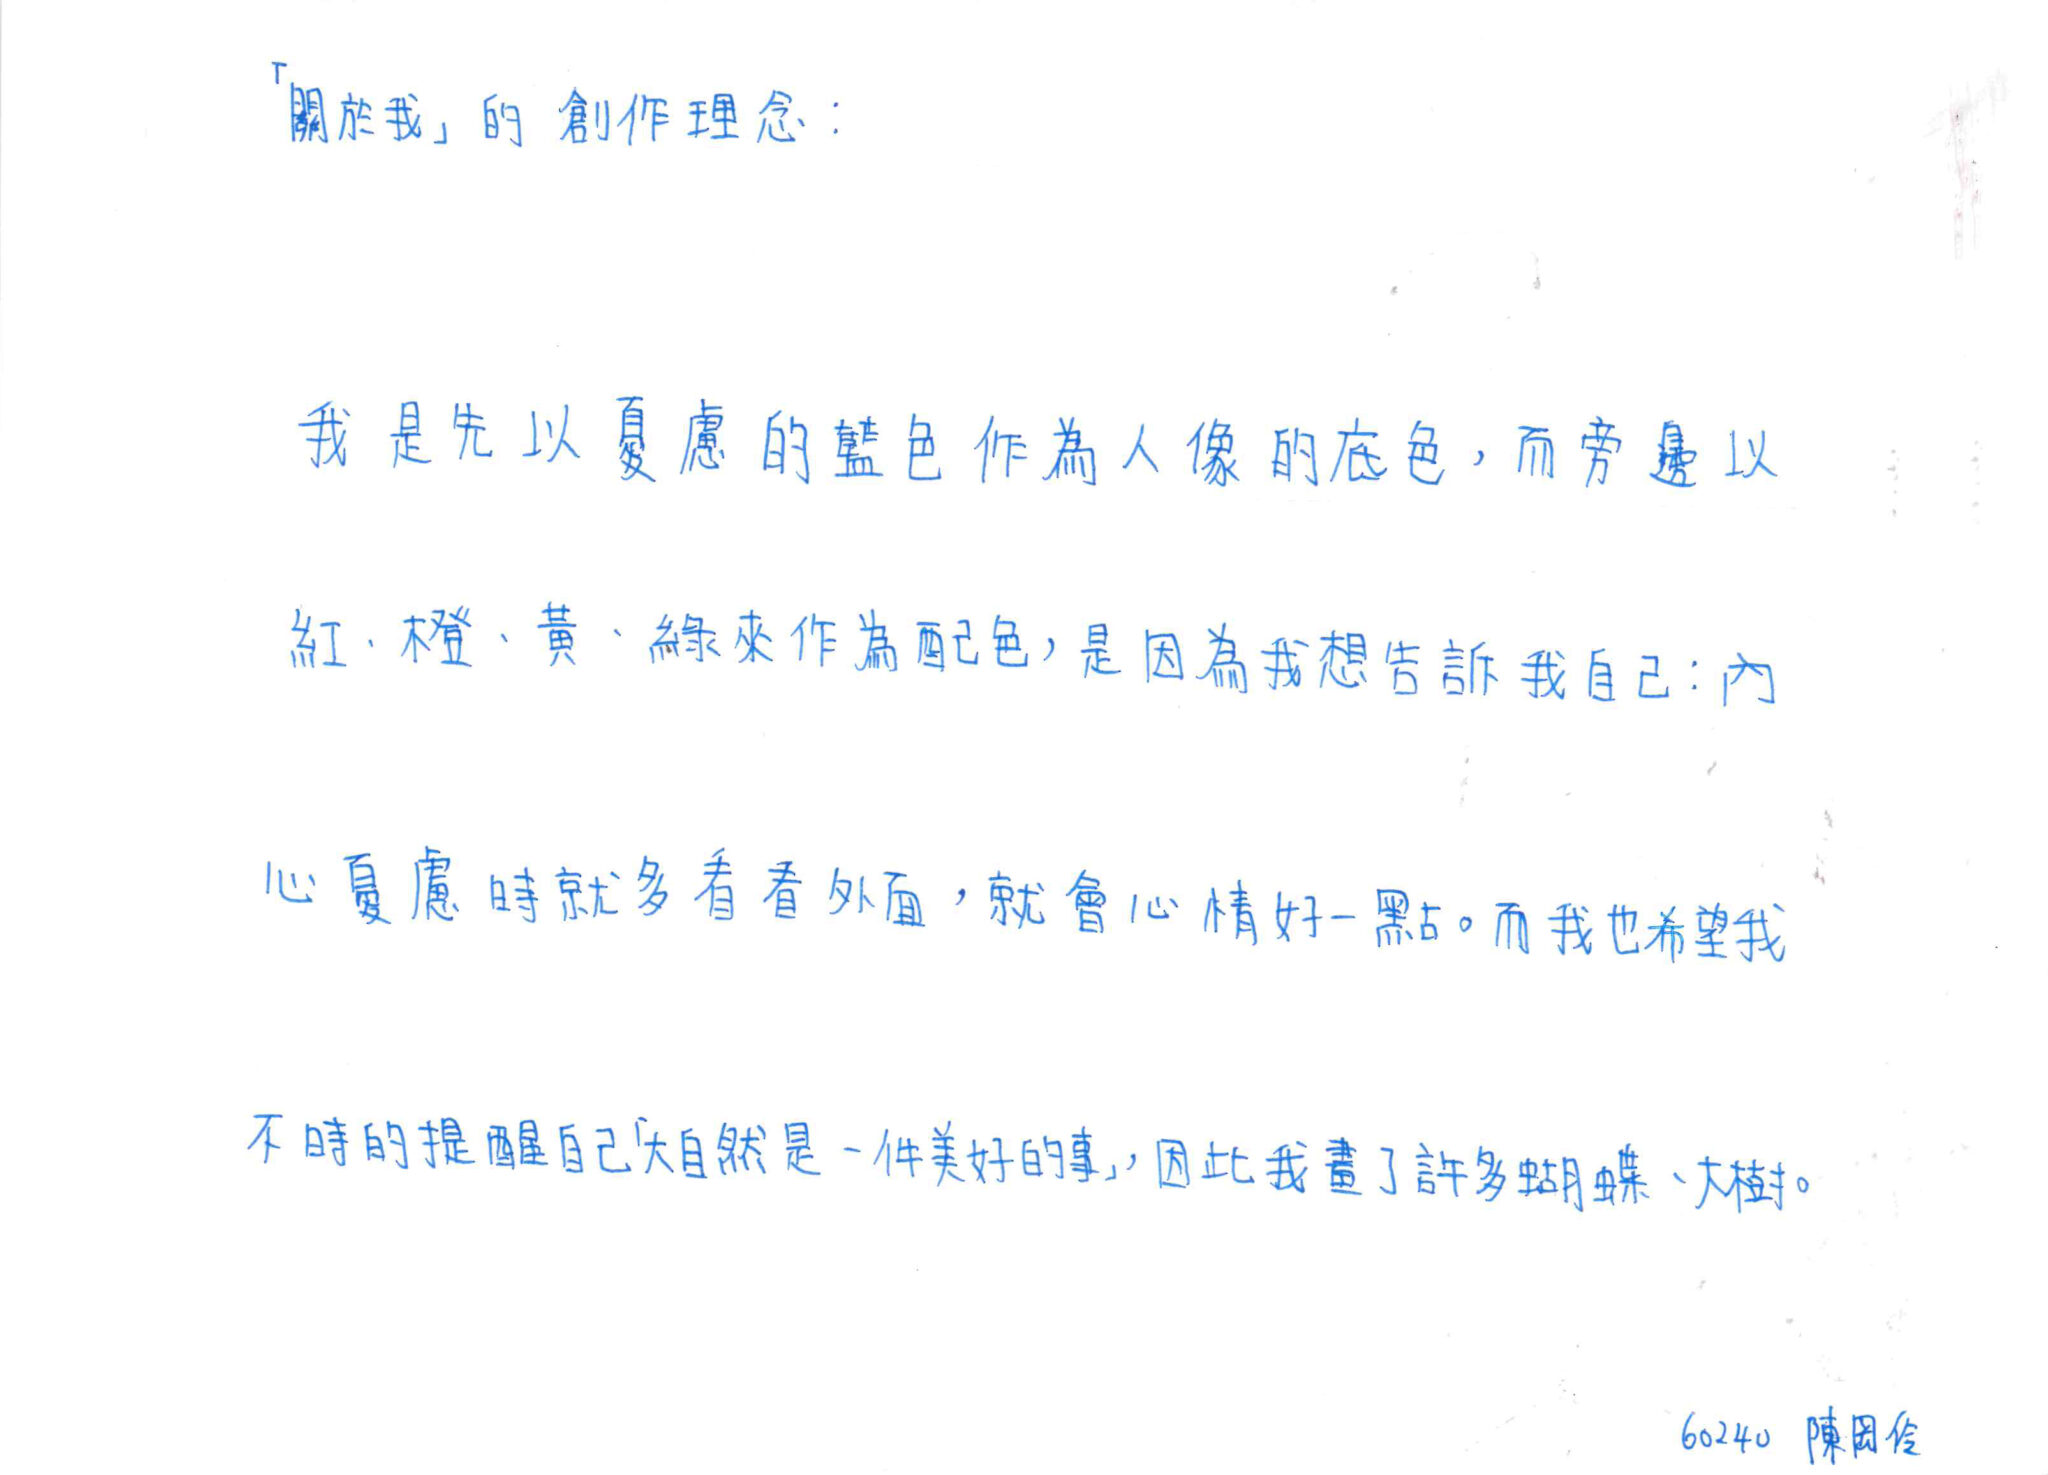 「關於我」的創作理念：
我是先以憂慮的藍色作為人像的底色，而旁邊以
紅、橙、黃、綠來作為配色，是因為我想告訴我自己：內
心憂慮時就多看看外面，就會心情好一點。而我也希望我
不時的提醒自己「大自然是一件美好的事」，因此我畫了許多蝴蝶、大樹。
60240 陳